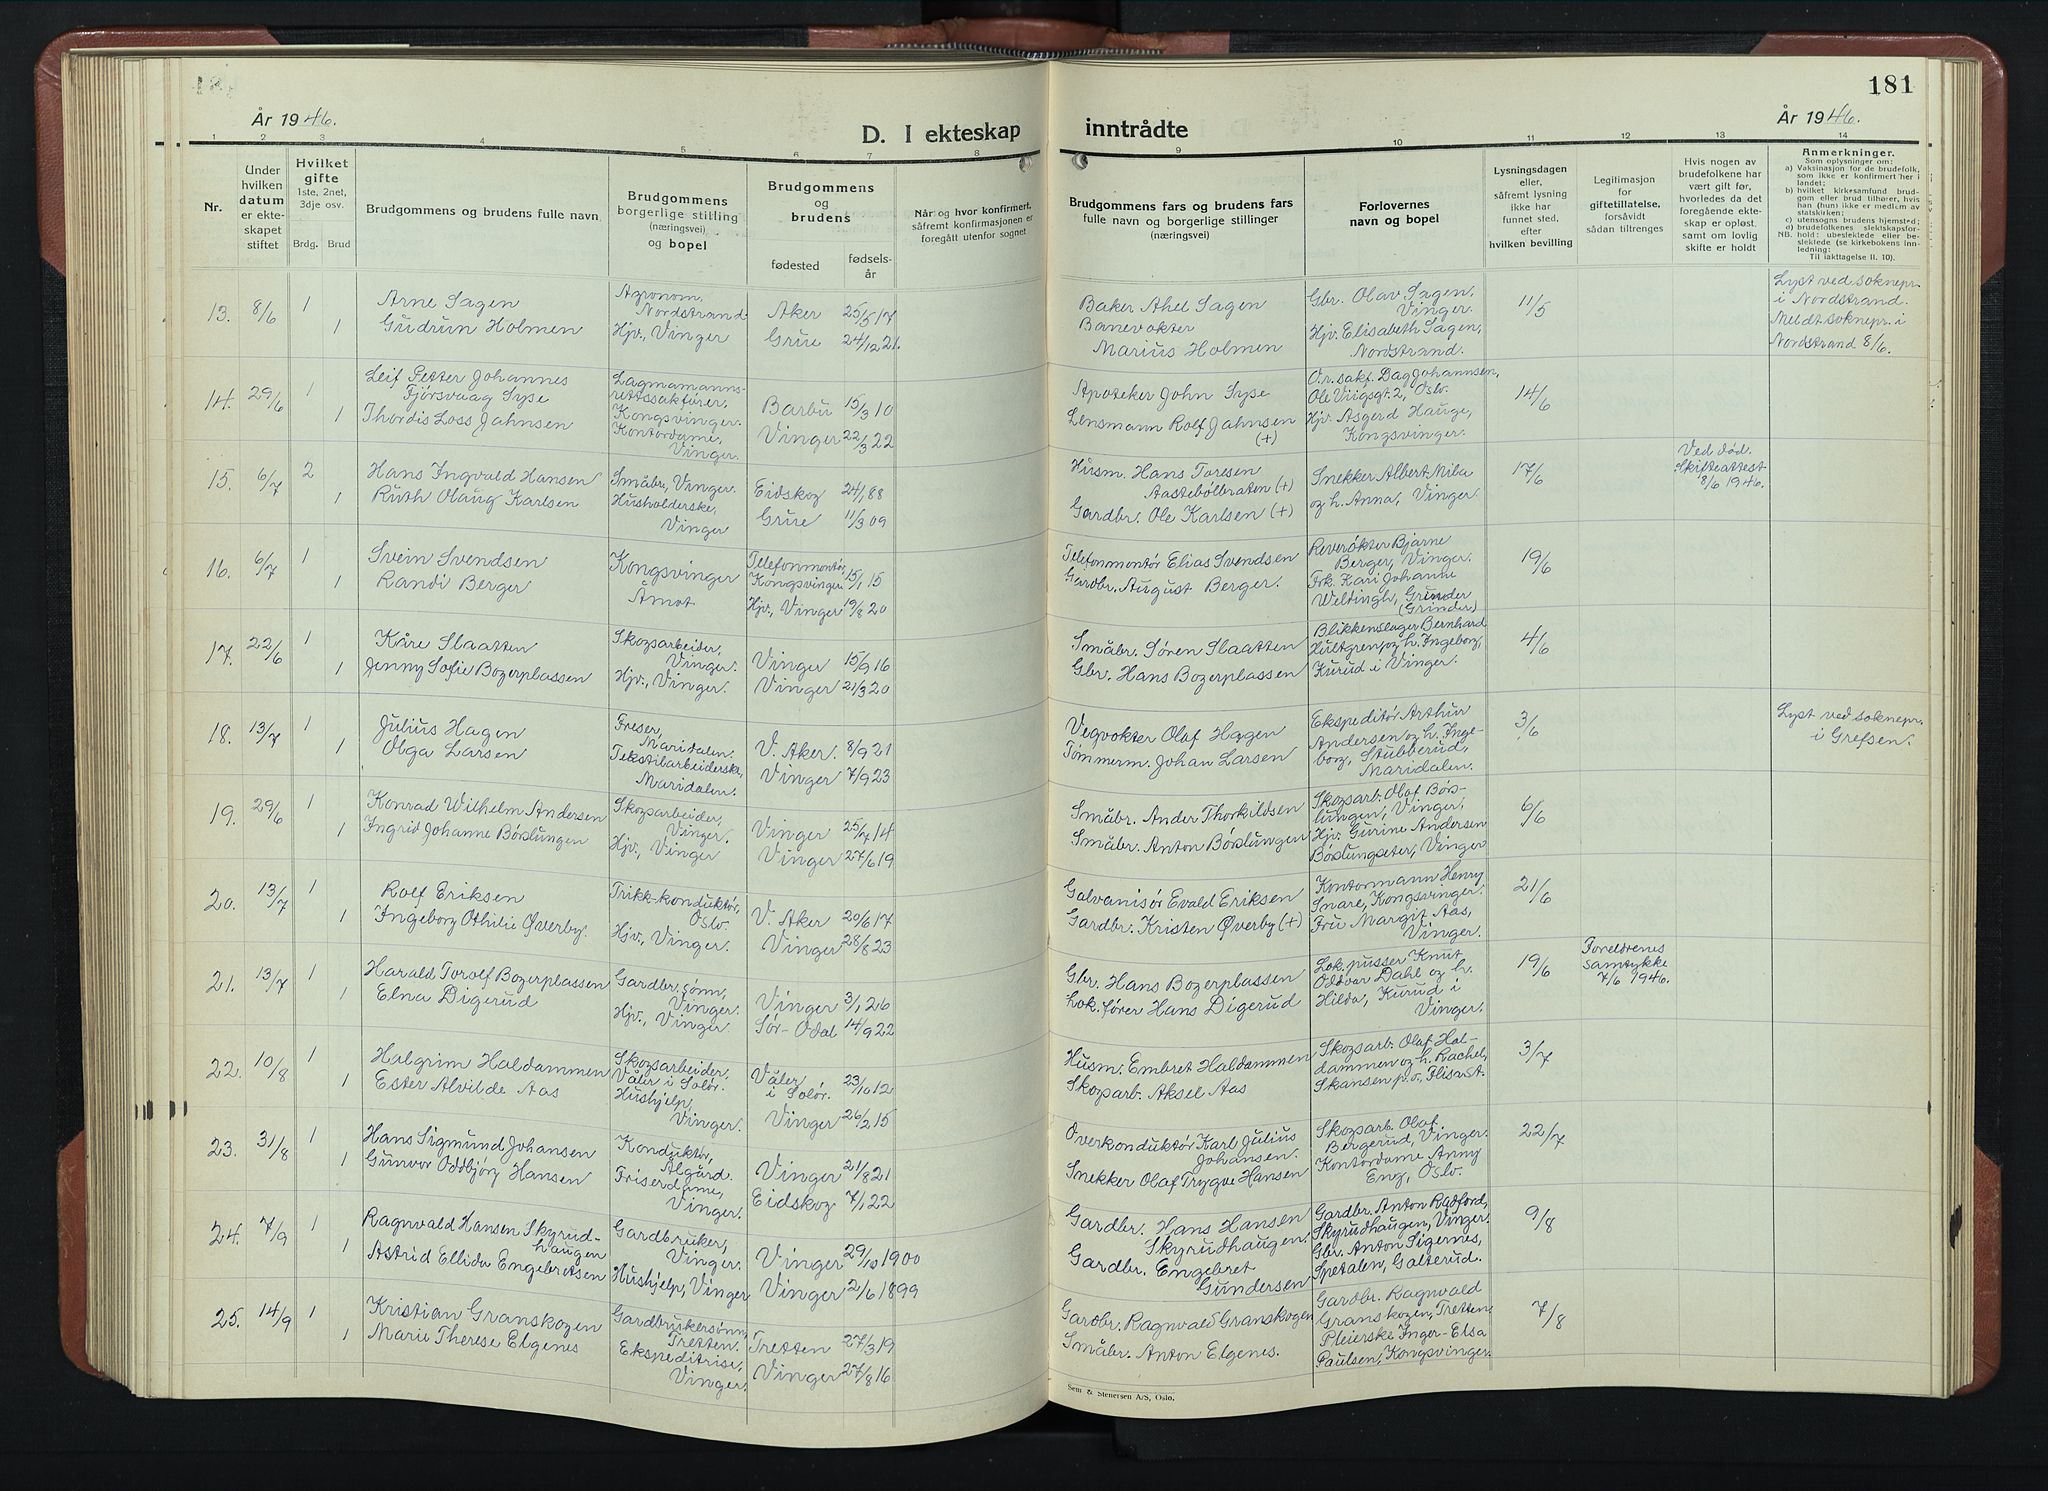 181
År 1946.
År 1946.
D. I ekteskap inntrådte
1 2 3 4 5 6 7 8 9 10 11 12 13 14
Nr.
Under hvilken datum er ekteskapet stiftet
Hvilket gifte
1ste, 2net, 3dje osv.
Brdg. Brud
Brudgommens og brudens fulle navn
Brudgommens borgerlige stilling (næringsvei) og bopel
Brudgommens og brudens
fødested
fødselsår
Når og hvor konfirmert, såfremt konfirmasjonen er foregått utenfor sognet
Brudgommens fars og brudens fars fulle navn og borgerlige stillinger (næringsvei)
Forlovernes navn og bopel
Lysningsdagen eller, såfremt lysning ikke har funnet sted, efter hvilken bevilling
Legitimasjon for giftetillatelse, forsåvidt sådan tiltrenges
Hvis nogen av brudefolkene har vært gift før, hvorledes da det foregående ekteskap er opløst samt om lovlig skifte er holdt
Anmerkninger.
Som oplysninger om:
a) Vaksinasjon for de brudefolk, som ikke er konfirmert her i landet;
b) hvilket kirkesamfund brudgom eller brud tilhører, hvis han (hun) ikke er medlem av statskirken;
c) utensogns brudens hjemsted;
d) brudefolkenes slektskapsforhold: ubeslektede eller beslektede (se kirkebokens innledning:
NB. Til iakttagelse II. 10).
13. 8/6 1 Arne Sagen Agronom, Nordstrand. Aker 25/5 17 Baker Ahel Sagen Gbr. Olav Sagen, Vinger. 11/5 Lyst ved soknepr. i Nordstrand.
1 Gudrun Holmen Hjv., Vinger Grue 24/12 21. Banevokter Marius Holmen Hjv. Elisabeth Sagen, Nordstrand. Meldt soknepr. i Nordstrand 8/6.
14. 29/6 1 Leif Petter Johannes Fjørsvaag Syse Lagmannsrettssakfører, Kongsvinger. Barbu 15/3 10 Apoteker John Syse O.r.sakf. Dag Johannsen, Ole Viigsgt. 2, Oslo. 14/6
1 Thordis Loss Jahnsen Kontordame, Vinger. Vinger 22/3 22 Lensmann Rolf Jahnsen (+) Hjv. Asgerd Hauge, Kongsvinger.
15. 6/7 2 Hans Ingvald Hansen Småbr., Vinger. Eidskog 24/1 88 Husm. Hans Toresen Aastebølbraten (+) Snekker Albert Mila og h. Anna, Vinger. 17/6 Ved død. Skifteattest 8/6 1946.
1 Ruth Olaug Karlsen Husholderske, Vinger Grue 11/3 09 Gardbr. Ole Karlsen (+)
16. 6/7 1 Svein Svendsen Kongsvinger Telefonmontør, Kongsvinger 15/1 15 Telefonmontør Elias Svendsen Reverøkter Bjarne Berger, Vinger. 19/6
1 Randi Berger Åmot Hjv., Vinger 19/8 20 Gardbr. August Berger. Frk. Kari Johanne Weltingh, Grinder (Grinder)
17. 22/6 1 Kåre Slaatten Skogsarbeider, Vinger. Vinger 15/9 16 Småbr. Søren Slaatten Blikkenslager Bernhard Hultgren og h. Ingeborg, Kurud i Vinger. 4/6
1 Jenny Sofie Bogerplassen Hjv., Vinger. Vinger 21/3 20 Gbr. Hans Bogerplassen
18. 13/7 1 Julius Hagen Freser, Maridalen. V. Aker. 8/9 21 Vegvokter Olaf Hagen Ekspeditør Arthur Andersen og h. Ingeborg, Stubberud, Maridalen. 3/6 Lyst ved soknepr. i Grefsen.
1 Olga Larsen Tekstilarbeiderske, Maridalen. Vinger 7/9 23 Tømmerm. Johan Larsen
19. 29/6 1 Konrad Wilhelm Andersen Skogsarbeider, Vinger. Vinger 25/7 14 Småbr. Ander Thorkildsen Skogsarb. Olaf Børslungen, Vinger, 6/6
1 Ingrid Johanne Børslungen Hjv., Vinger Vinger 27/6 19 Småbr. Anton Børslungen Hjv. Gurine Andersen Børslungseter, Vinger
20. 13/7 1 Rolf Eriksen Trikk-konduktør, Oslo. V. Aker 20/6 17 Galvanisør Evald Eriksen Kontormann Henry Snare, Kongsvinger. 21/6
1 Ingeborg Othilie Øverby. Hjv., Vinger. Vinger 28/8 23 Gardbr. Kristen Øverby (+) Fru Margit Aas, Vinger.
21. 13/7 1 Harald Torolf Bogerplassen Gardbr.sønn, Vinger. Vinger 3/1 26 Gbr. Hans Bogerplassen Lok.pusser Knut Oddvar Dahl og h. Hilda, Kurud i Vinger. 19/6 Foreldrenes samtykke 7/6 1946.
1 Elna Digerud Hjv., Vinger Sør-Odal 14/9 22 Lok.fører Hans Digerud
22. 10/8 1 Halgrim Haldammen Skogsarbeider, Våler i Solør. Våler i Solør. 23/10 12 Husm. Embret Haldammen Skogsarb. Olaf Haldammen og h. Rachel, Skansen p.o., Flisa st. 3/7
1 Ester Alvilde Aas Hushjelp, Vinger. Vinger 26/2 15 Skogsarb. Aksel Aas
23. 31/8 1 Hans Sigmund Johansen Konduktør, Ålgård. Vinger 21/8 21 Overkonduktør Karl Julius Johansen. Skogsarb. Olaf Bergerud, Vinger. 22/7
1 Gunvor Oddbjørg Hansen Friserdame, Vinger. Eidskog 7/1 22 Snekker Olaf Trygve Hansen Kontordame Anny Eng, Oslo.
24. 7/9 1 Ragnvald Hansen Skyrudhaugen Gardbruker, Vinger. Vinger 29/10 1900 Gardbr. Hans Hansen Skyrudhaugen. Gardbr. Anton Radford, Skyrudhaugen, Vinger. 9/8
1 Astrid Ellida Engebretsen Hushjelp, Vinger Vinger 2/6 1899 Gardbr. Engebret Gundersen Gbr. Anton Sigernes, Spetalen, Galterud.
25. 14/9 1 Kristian Granskogen Gardbrukersønn, Tretten. Tretten 27/3 19 Gardbr. Ragnvald Granskogen Gardbr. Ragnvald Granskogen, Tretten, 7/8
1 Marie Therese Elgenes Ekspeditrise, Vinger. Vinger 27/8 16 Småbr. Anton Elgenes. Pleierske Inger-Elsa Paulsen, Kongsvinger.
Sem & Stenersen A/S, Oslo.